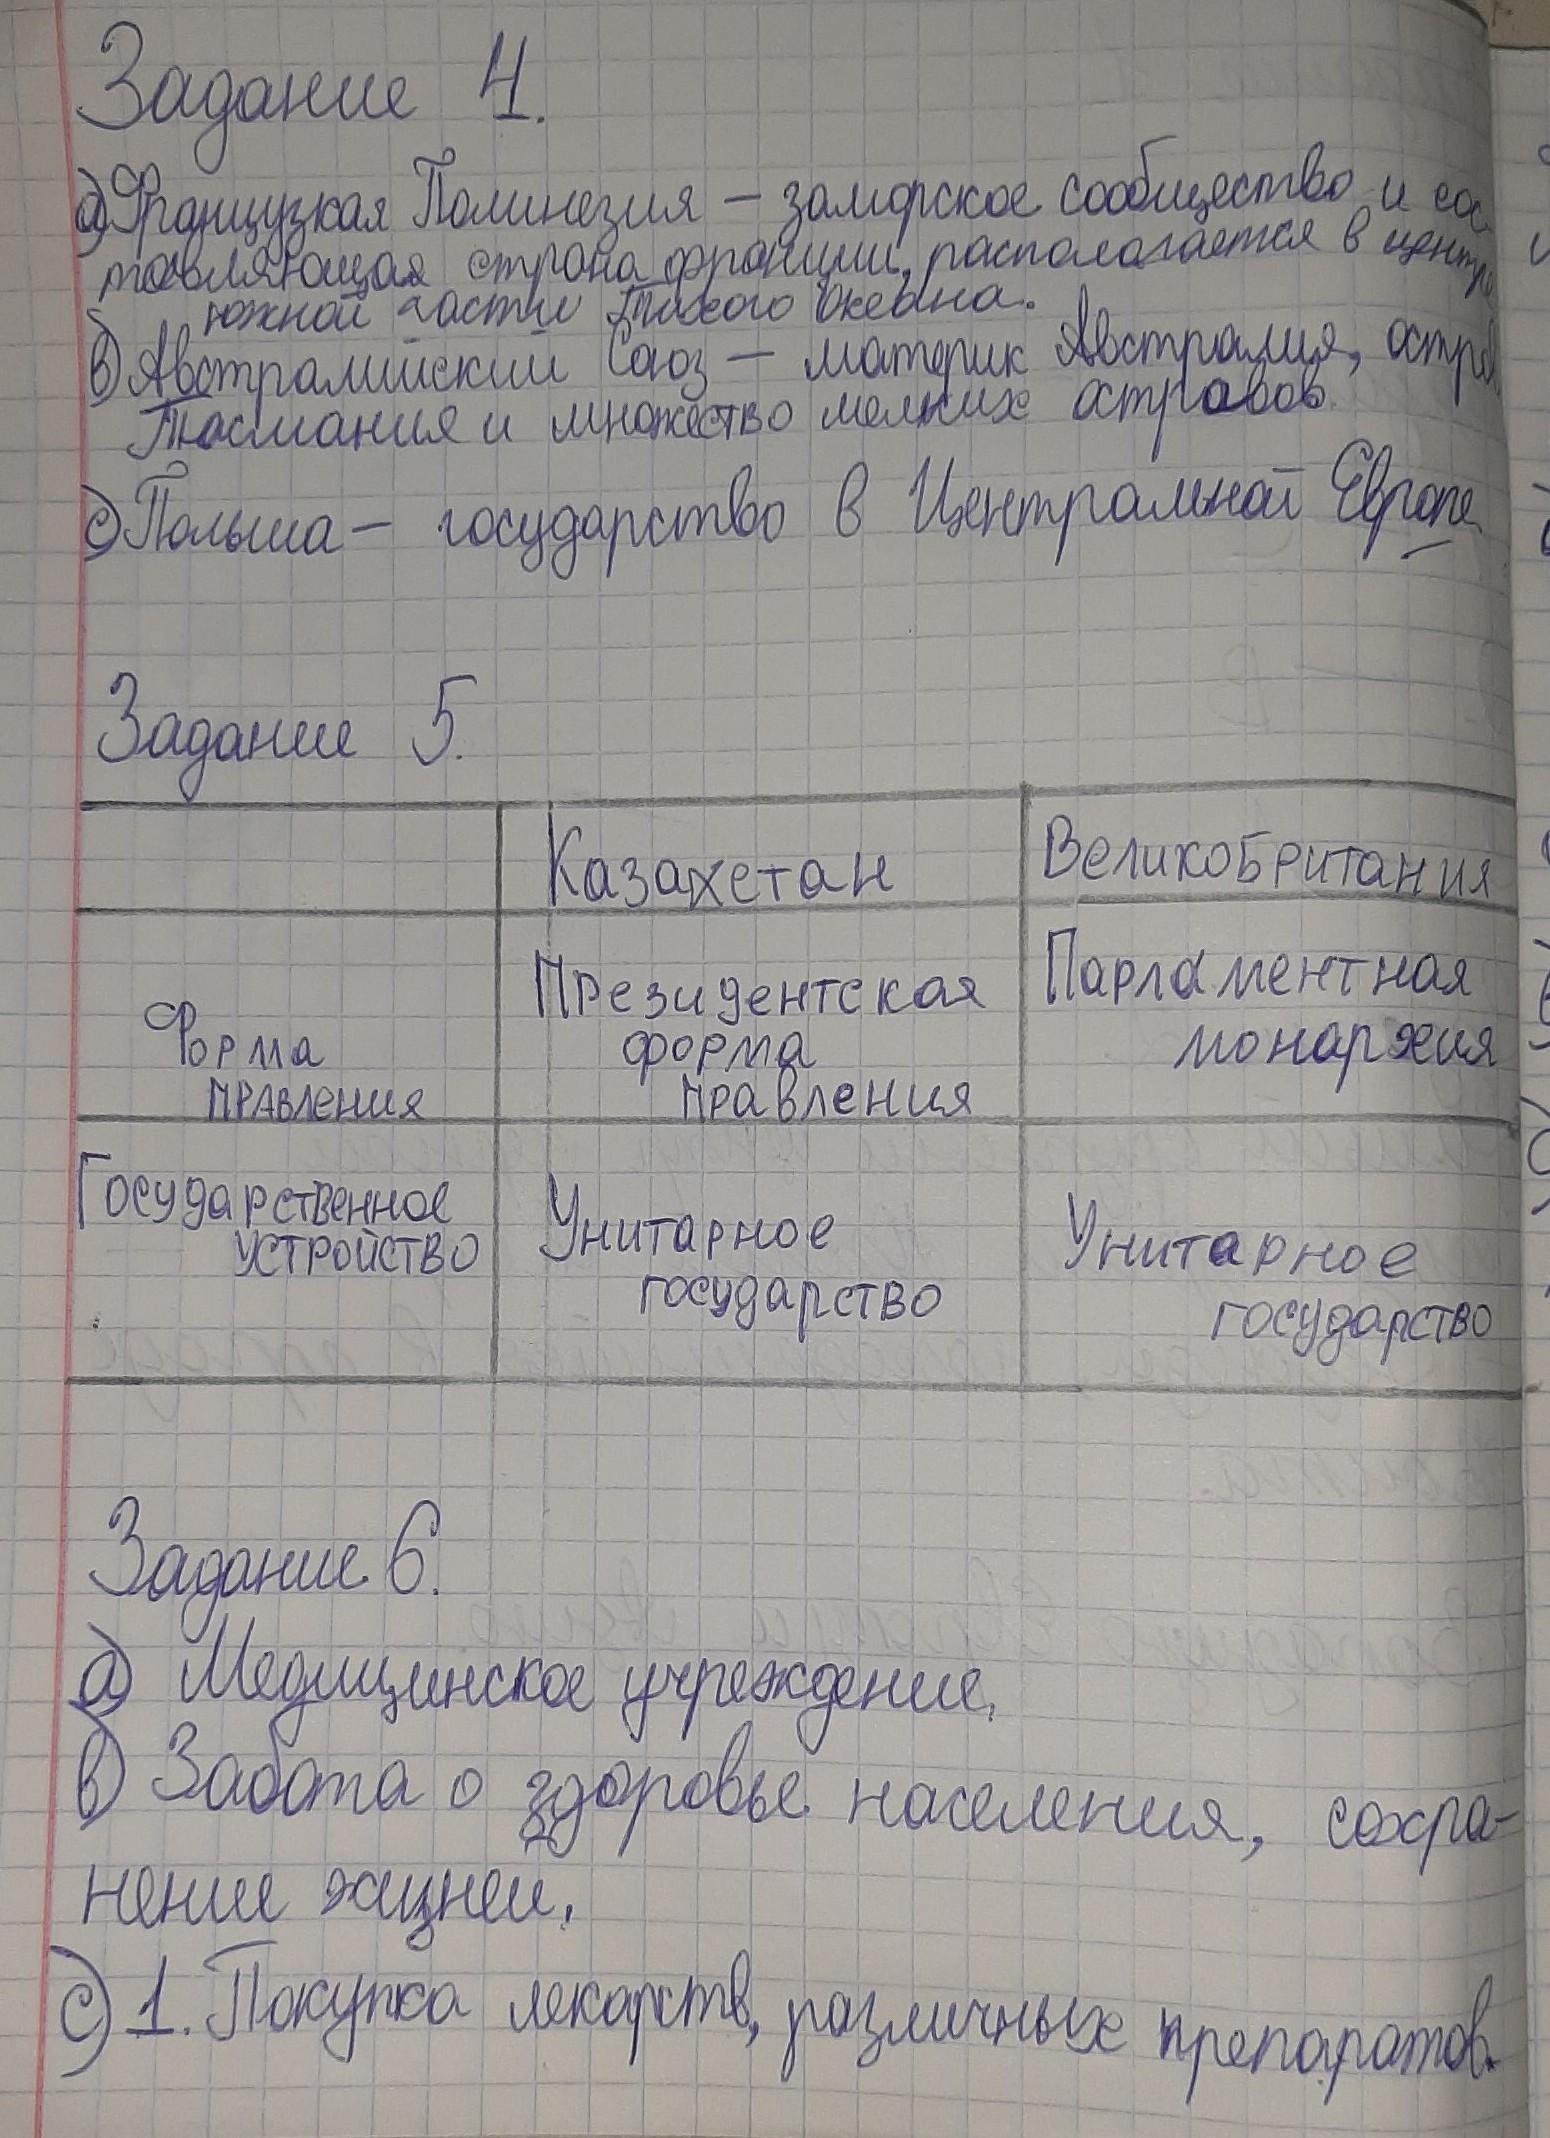 Задание 4.
а) Французкая Полинезия – заморское сообщество и сос
тавляющая страна франции, располагается в центре
южной части Тихого океана.
в) Австралийский Союз – материк Австралия, остров
Тасмания и множество мелких островов.
с) Польша – государство в Центральной Европе
Задание 5.
Казахстан Великобритания
Президентская Парламентная
Форма форма монархия
правления правления
Государственное Унитарное Унитарное
устройство государство государство
Задание 6.
а) Медицинское учреждение.
в) Забота о здоровье населения, сохра-
нение жизней.
с) 1. Покупка лекарств, различных препаратов.